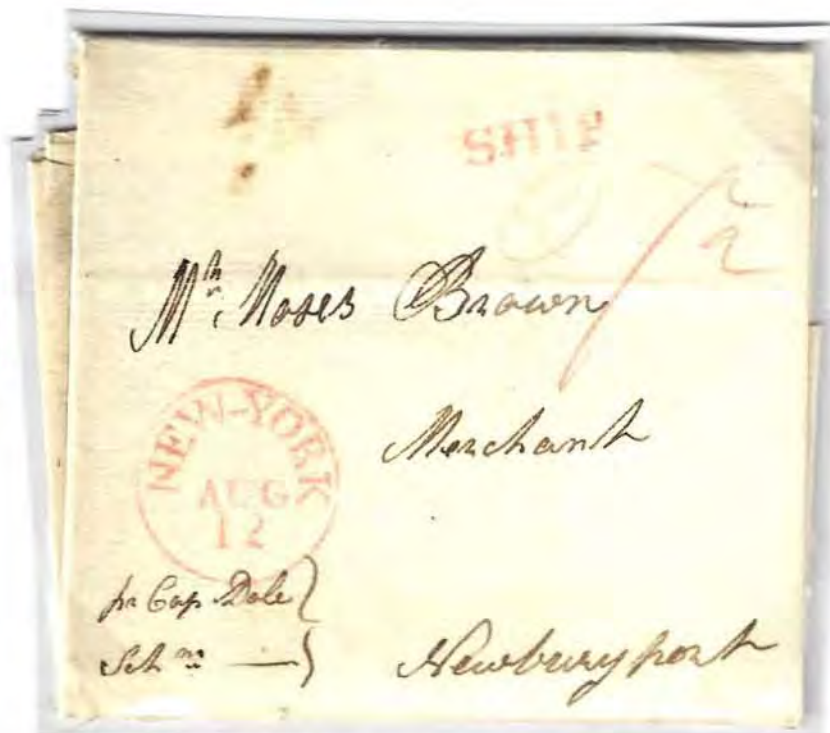 SHIP
Mr. Moses Brown
Merchant
NEW-YORK
AUG
12
pr Cap Dole
Schnr —
Newburyport